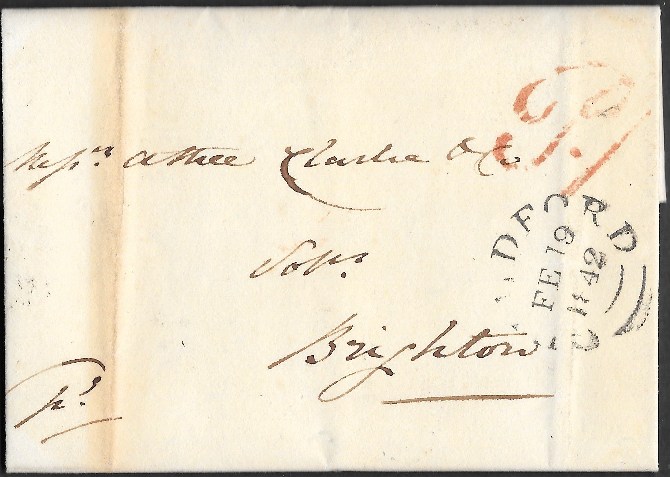 Messrs Attree Clarke & Co
Solrs
Brighton
pd
Pd 1
DFORD
FE 19
1842